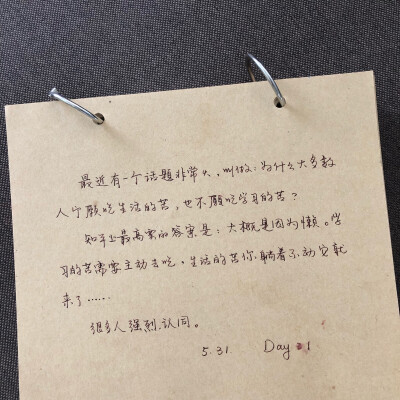 最近有一个话题非常火，叫做：为什么大多数
人宁愿吃生活的苦，也不愿吃学习的苦？
知乎上最高票的答案是：大概是因为懒。学
习的苦需要主动去吃，生活的苦你躺着不动它就
来了……
很多人强烈认同。
5.31. Day 1